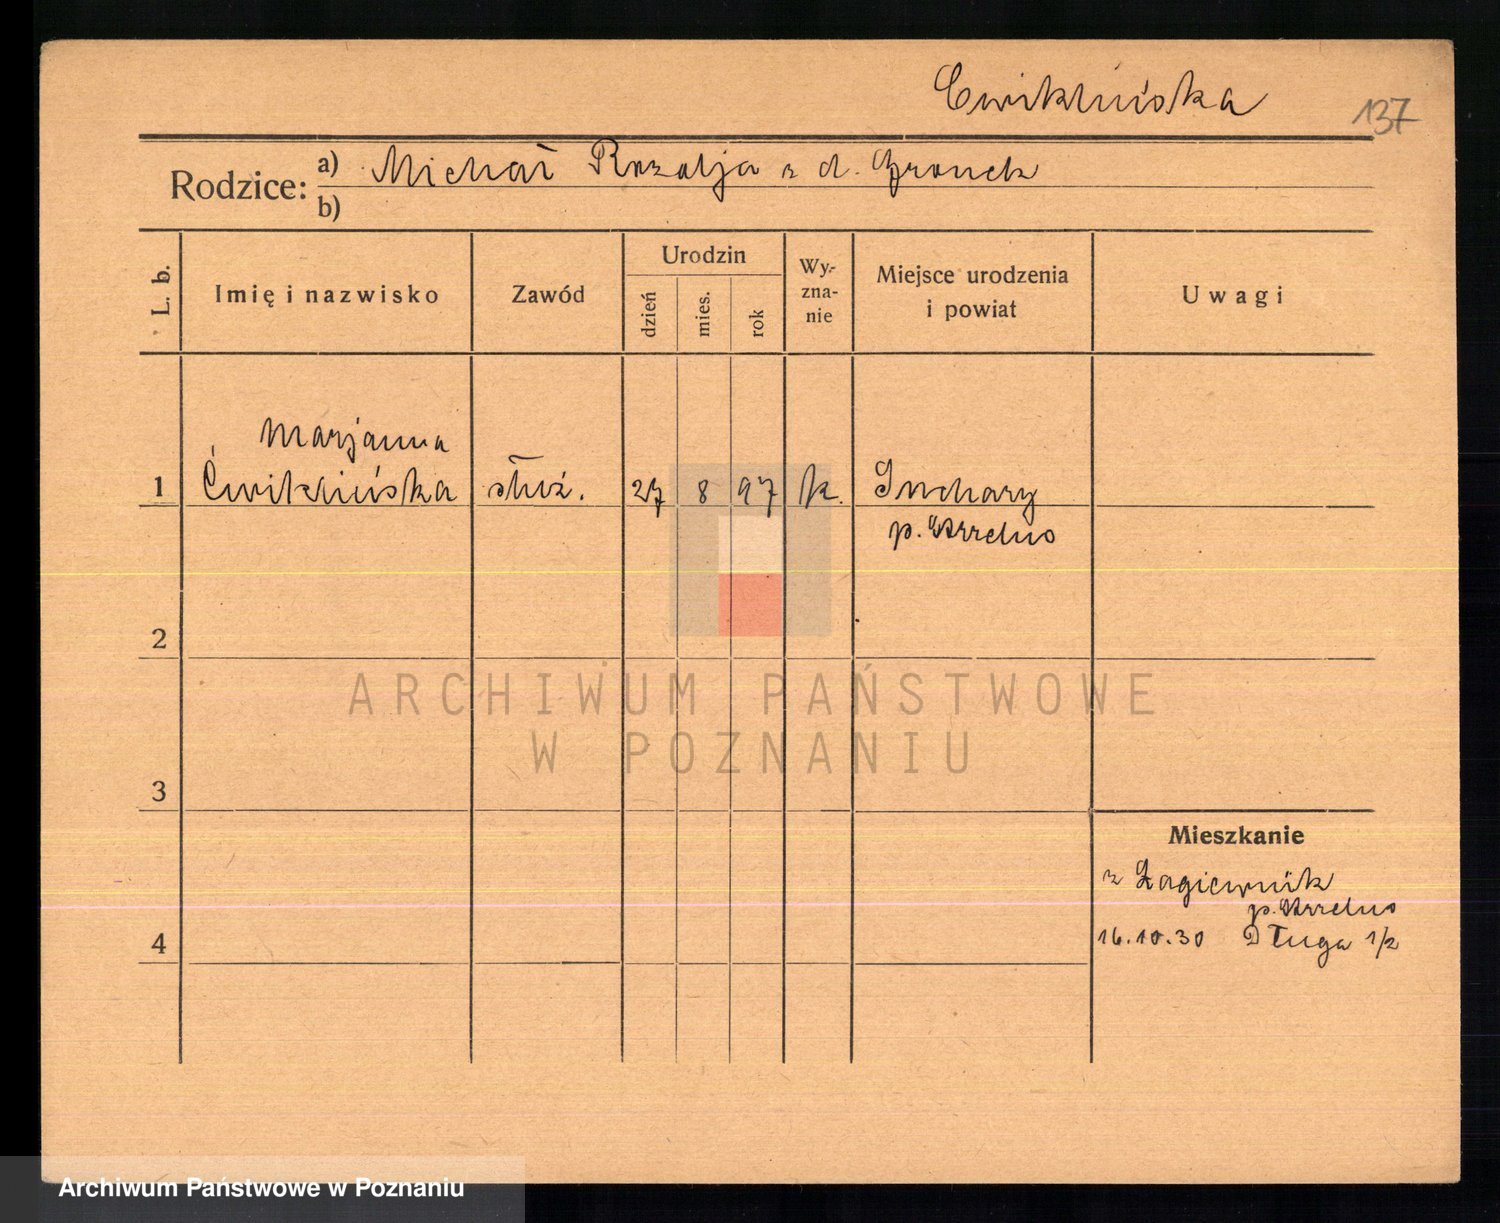 Ćwiklińska
137
Rodzice: a) Michał Rozalja z d. Gronek
b)
L. b.
Imię i nazwisko
Zawód
Urodzin
dzień
mies.
rok
Wy-
zna-
nie
Miejsce urodzenia
i powiat
Uwagi
Marjanna
1 Ćwiklińska służ. 27 8 97 k. Suchary
p. Strzelno
2
3
4
Mieszkanie
z Łagiewnik
p. Strzelno
16.10.30 Długa 1/2
ARCHIWUM PAŃSTWOWE
W POZNANIU
Archiwum Państwowe w Poznaniu